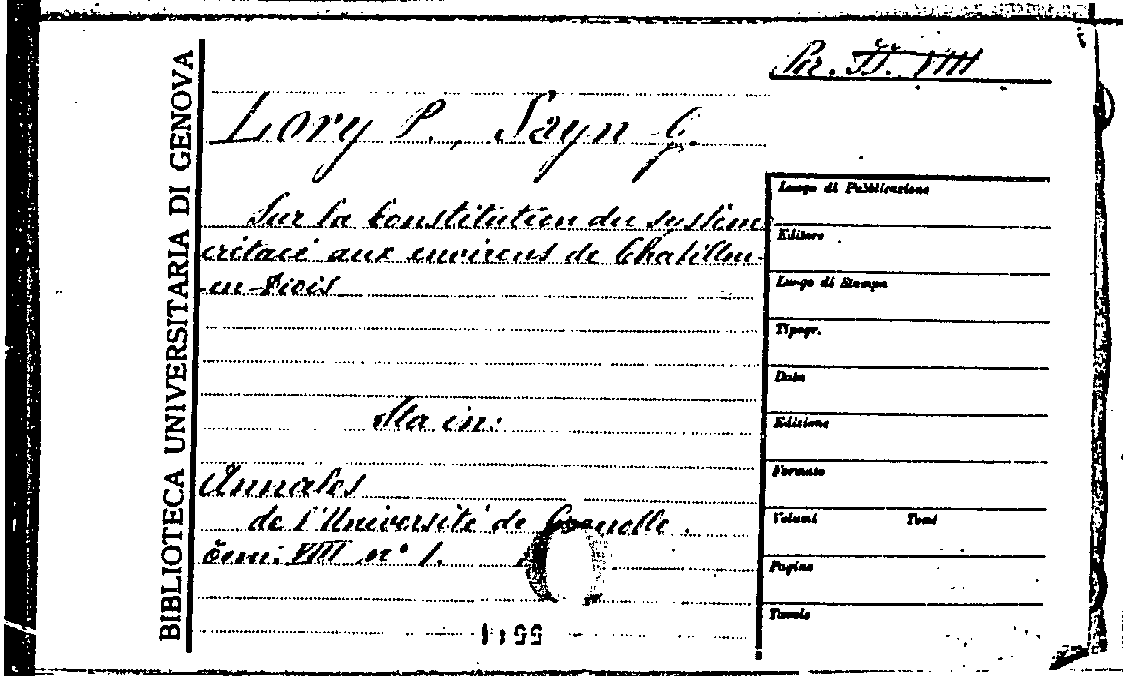 BIBLIOTECA UNIVERSITARIA DI GENOVA
Per. II. VIII
Lory P., Sayn G.
Sur la constitution du système
crétacé aux environs de Chatillon-
en-Diois
Sta in:
Annales
de l'Université de Grenoble.
Tom. VIII n° 1.
Luogo di Pubblicazione
Editore
Luogo di Stampa
Tipogr.
Data
Edizione
Formato
Volumi Tomi
Pagine
Tavole